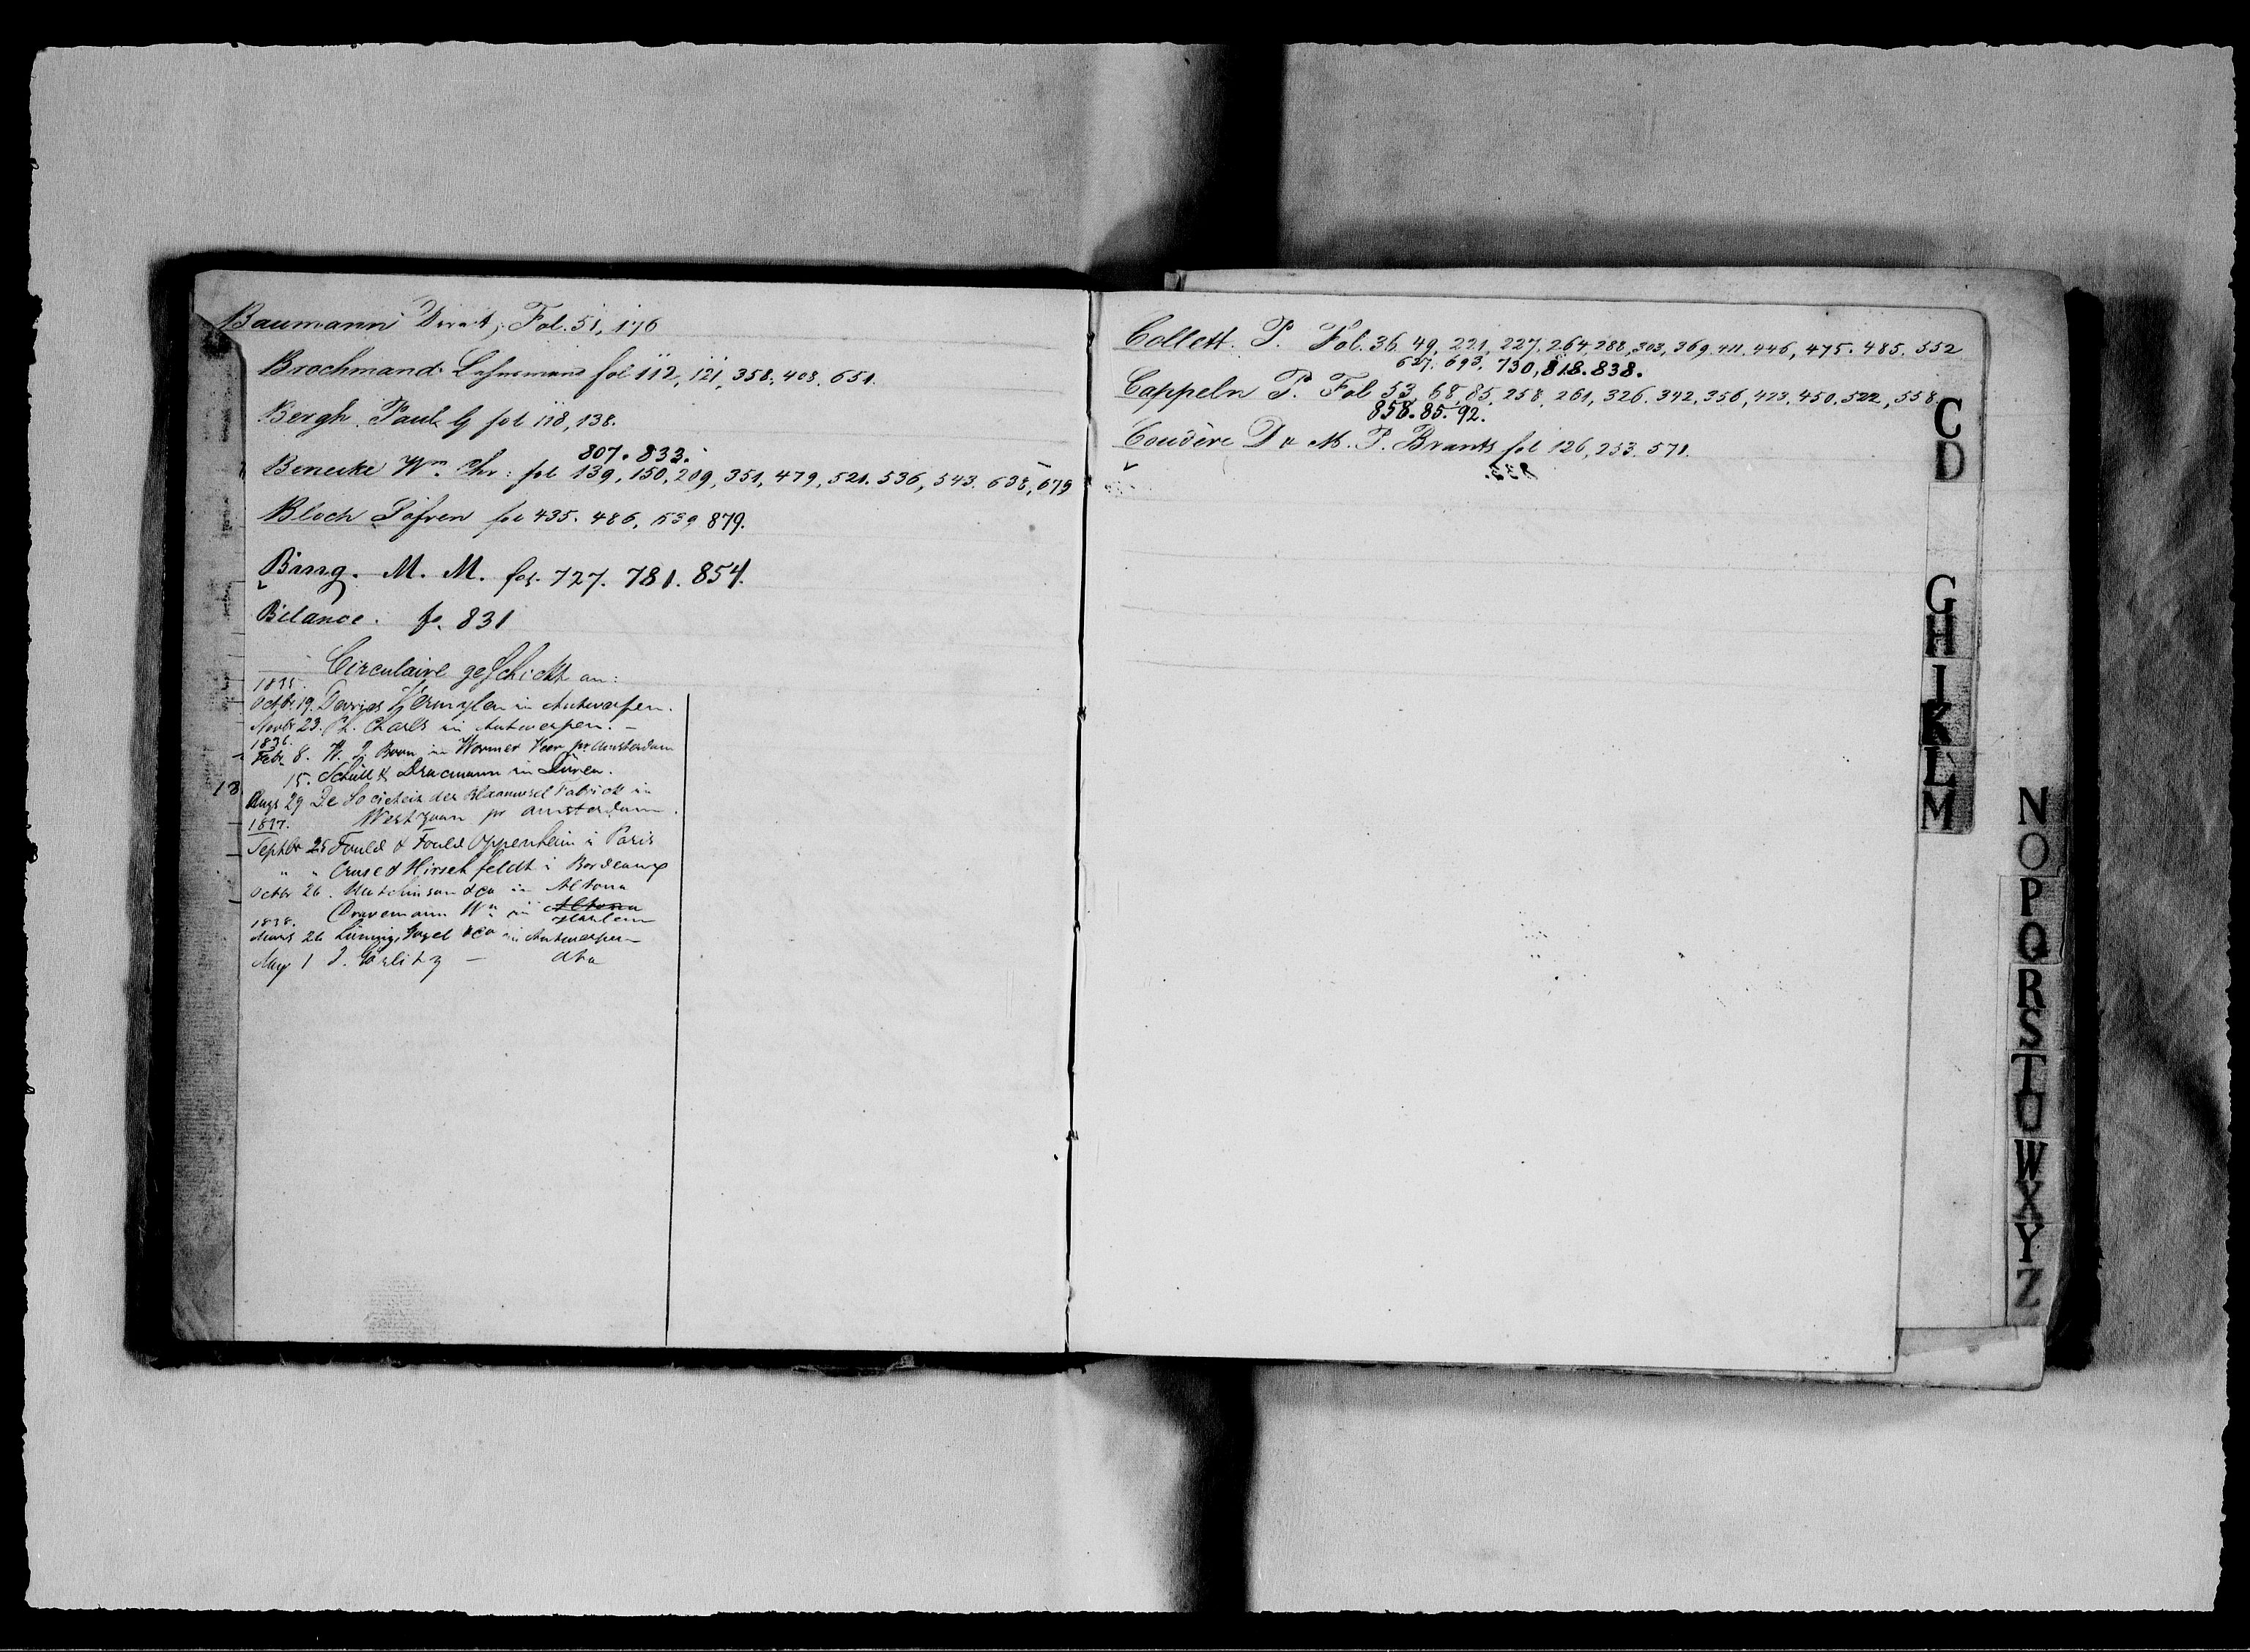 Baumann Direct, Fol. 51, 176
Brochmand fol 112, 121, 358, 408. 651.
Bergh. Paul G fol 118, 138.
807. 833.
Benecke Wm Chr: fol 139, 150, 209, 351, 479, 521. 536, 543. 638, 679
Bloch fol 435. 486, 539 879.
Bang. M. M. fol. 727. 781. 854.
Bilance. fo. 831
Circulaire geschickt an:
1835.
Octbr. 19. Vermylen in Antwerpen.
Novbr 23. Ph. Charls in Antwerpen. –
1836.
Febr. 8. in Wormer Veer pr Amsterdam
15. Schüll & in Düren.
18
Augs 29 De Societeit der Blaauwsel Fabriek in
1837. Westzaan pr Amsterdam.
Septbr 25 Fould & Fould Oppenheim i Paris
" " Cruse & Hirschfeldt i Bordeaux
Octbr 26. Hutchinson & Co in Altona
Dravemann Wm in Altona
Harlem
1838.
Marts 26 & Co in Antwerpen
May 1 J. Görlitz – dto
Collett. P. Fol. 36 49, 221, 227, 264, 288, 303, 369. 411. 446, 475. 485. 552
627. 693. 730, 818. 838.
Cappeln P. Fol 53, 68, 85. 258. 261, 326. 342, 356, 423. 450. 522, 558.
858. 85. 92.
Coudère D & M. P. Brants fol 126, 253. 571.
C
D
G
H
I
K
L
M
N
O
P
Q
R
S
T
U
W
X
Y
Z